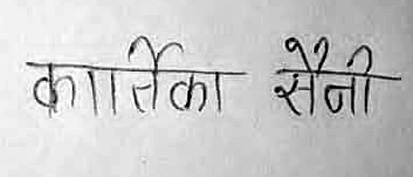 कार्तिका सैनी